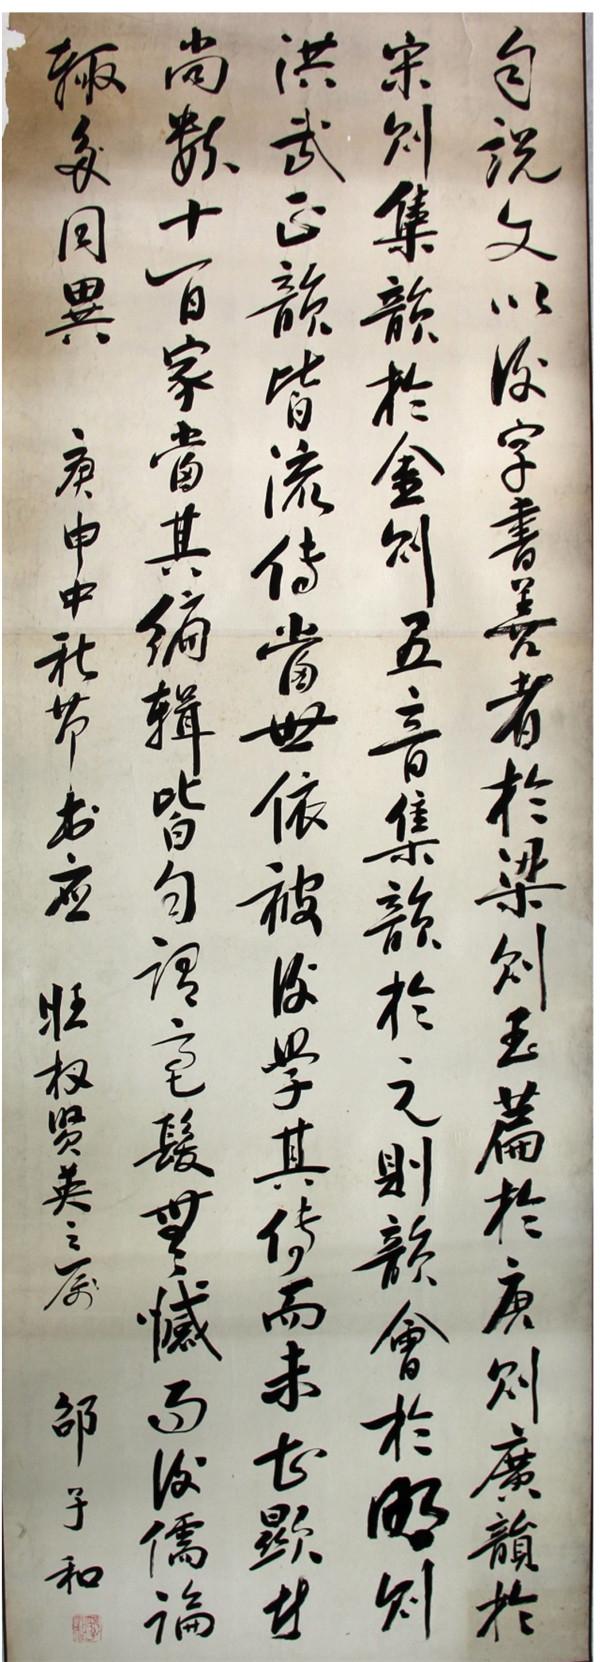 自說文以後字書善者於梁則玉篇於唐則廣韻於
宋則集韻於金則五音集韻於元則韻會於明則
洪武正韻皆流傳當世依被後學其傳而未甚顯者
尚數十百家當其編輯皆自謂毫髮無憾而後儒論
輒多同異 庚申中秋节书应 旺权贤英之属 邵子和